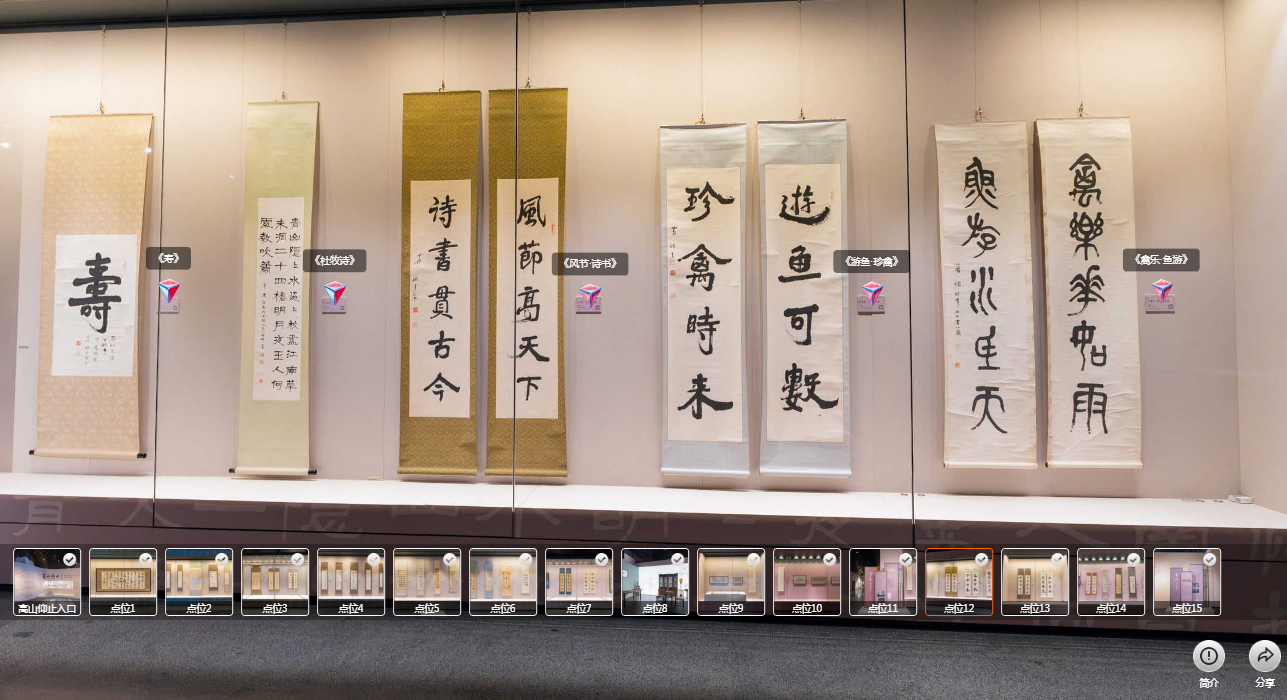 壽
《寿》
青山隱〻水迢〻秋盡江南草
未凋二十四橋明月夜玉人何
處教吹簫
《杜牧诗》
風節高天下
诗書貫古今
《风节·诗书》
遊魚可數
珍禽時来
《游鱼·珍禽》
禽樂華如雨
魚游水生天
《禽乐·鱼游》
高山仰止入口
点位1
点位2
点位3
点位4
点位5
点位6
点位7
点位8
点位9
点位10
点位11
点位12
点位13
点位14
点位15
简介
分享